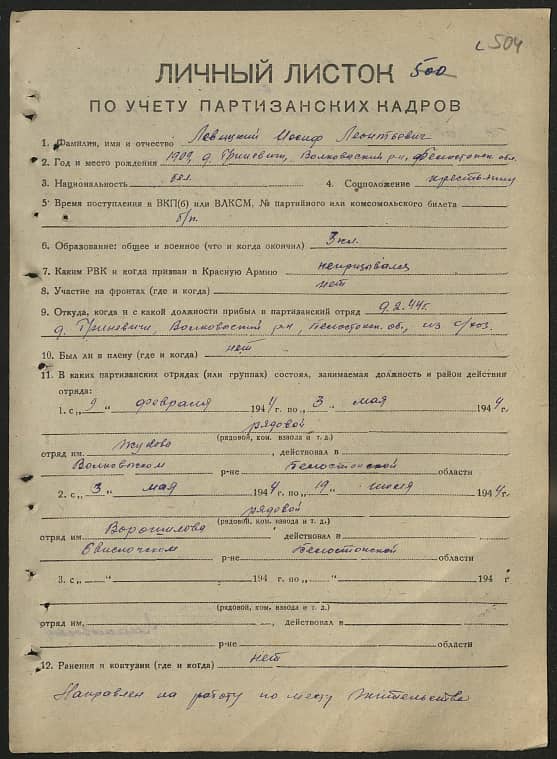 504
ЛИЧНЫЙ ЛИСТОК 500
ПО УЧЕТУ ПАРТИЗАНСКИХ КАДРОВ
1. Фамилия, имя и отчество Левицкий Иосиф Леонтьевич
2. Год и место рождения 1909, д. Гриневичи, Волковский р-н, Белостокск. обл.
3. Национальность бел. 4. Соцположение крестьянин
5. Время поступления в ВКП(б) или ВЛКСМ, № партийного или комсомольского билета
б/п.
6. Образование: общее и военное (что и когда окончил) 3 кл.
7. Каким РВК и когда призван в Красную Армию непризывался
8. Участие на фронтах (где и когда) нет
9. Откуда, когда и с какой должности прибыл в партизанский отряд 9.2.44г.
д. Гриневичи, Волковский р-н, Белостокск. об., из с/хоз.
10. Был ли в плену (где и когда) нет
11. В каких партизанских отрядах (или группах) состоял, занимаемая должность и район действия
отряда:
1. с „9“ февраля 1944 г. по „3“ мая 1944 г.
рядовой
(рядовой, ком. взвода и т. д.)
отряд им. Жукова, действовал в
Волковыском р-не Белостокской области
2. с „3“ мая 1944 г. по „19“ июля 1944 г.
рядовой
(рядовой, ком. взвода и т. д.)
отряд им. Ворошилова действовал в
Свислочском р-не Белостокской области
3. с „ “ 194 г. по „ “ 194 г
(рядовой, ком. взвода и т. д.)
отряд им, действовал в
р-не области
12. Ранения и контузии (где и когда) нет
Направлен на работу по месту жительства